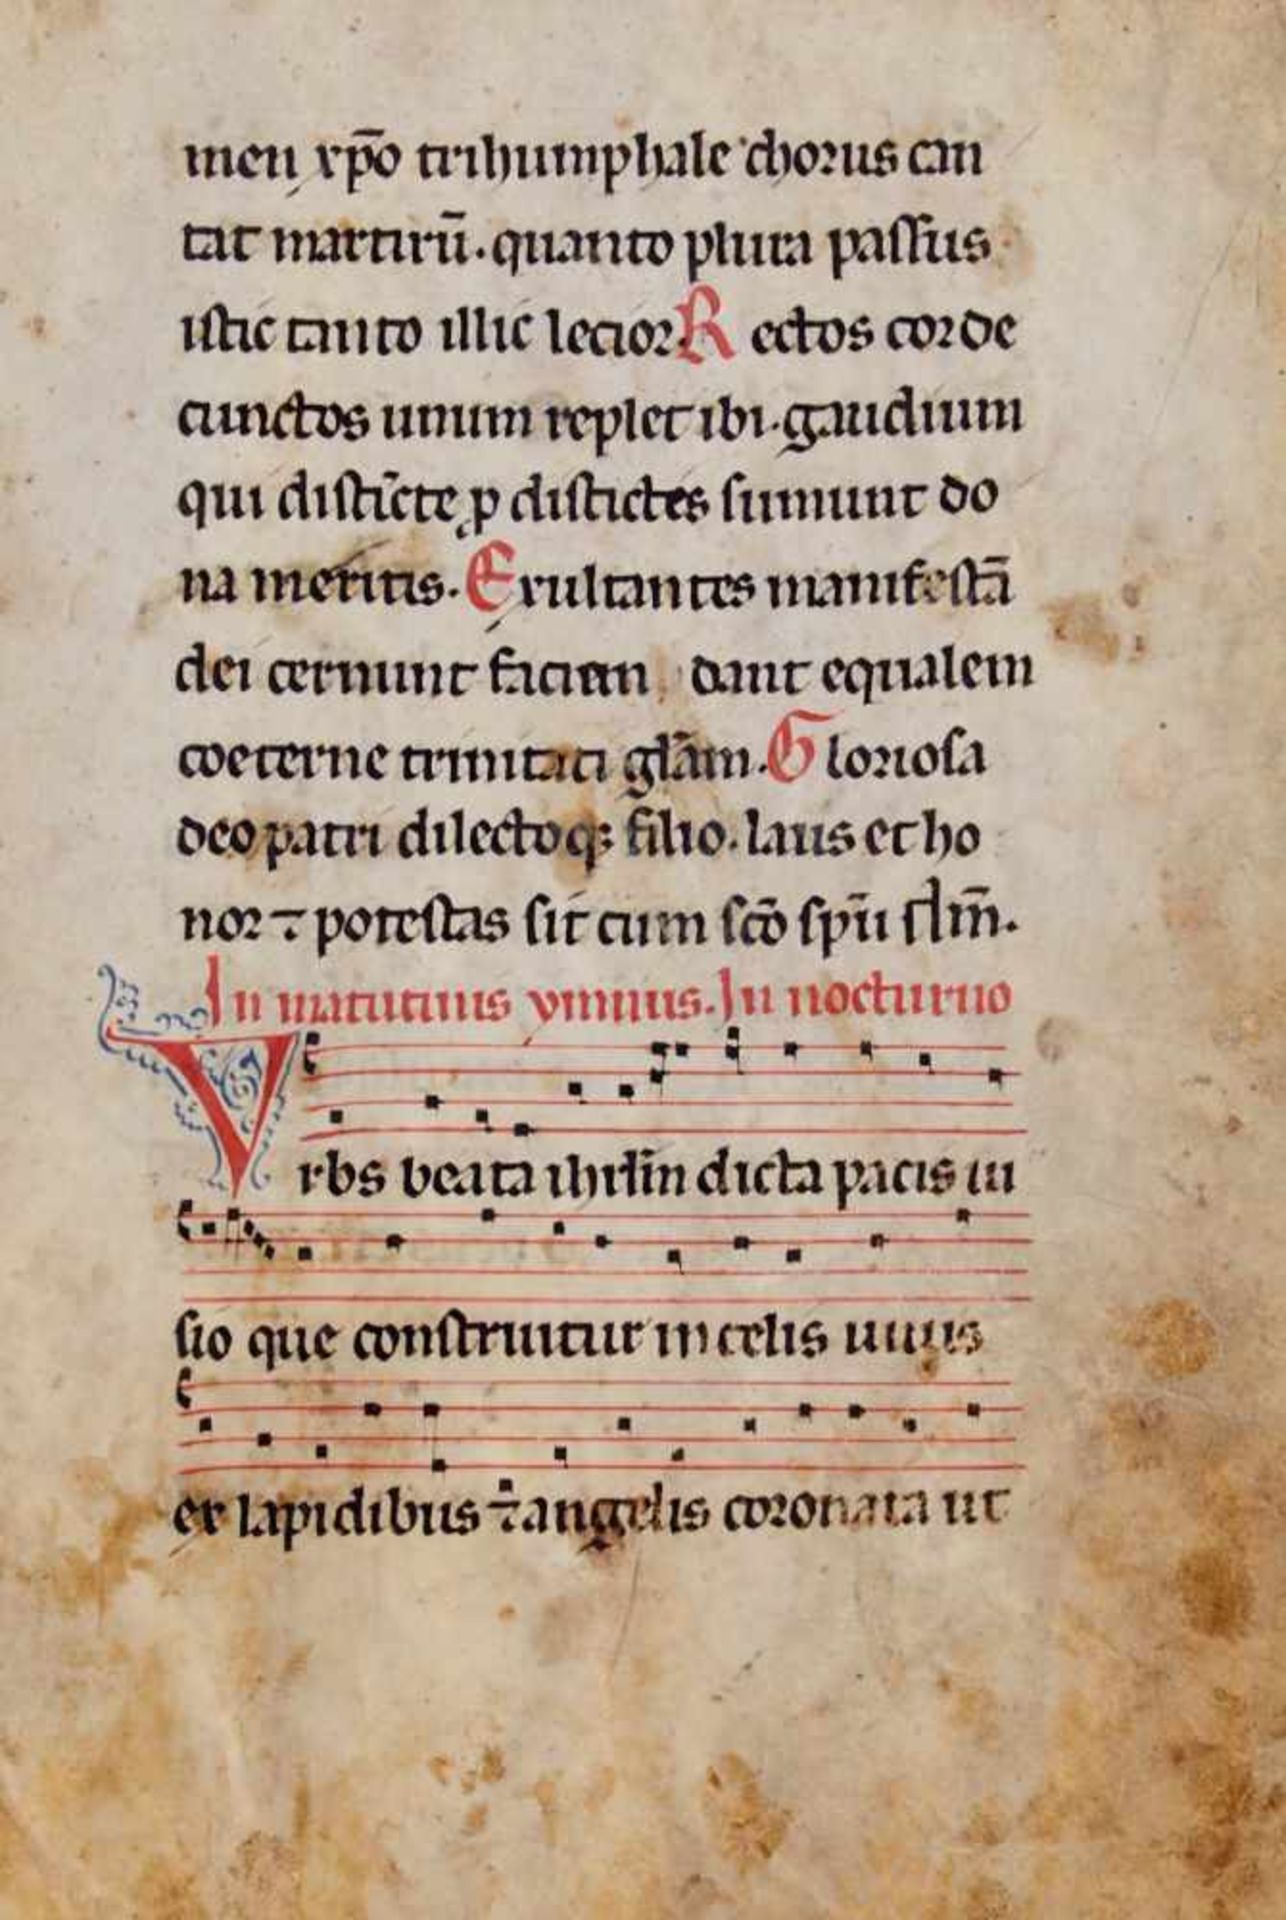 men xp̄o trihumphale chorus can
tat martirū. quanto plura passus
istic tanto illic lecior. Rectos corde
cunctos unum replet ibi. gaudium
qui distīcte ꝓ distictes sumunt do
na meritis. Exultantes manifestā
dei cernunt faciem dant equalem
coeterne trinitati gl̄am. Gloriosa
deo patri dilectoq; filio. laus et ho
nor ⁊ potestas sit cum sc̄o sp̄u
In matutinis ymnus. In nocturno
Vrbs beata ihrl̄m dicta pacis ui
sio que construitur in celis uiuis
ex lapidibus ⁊ angelis coronata ut